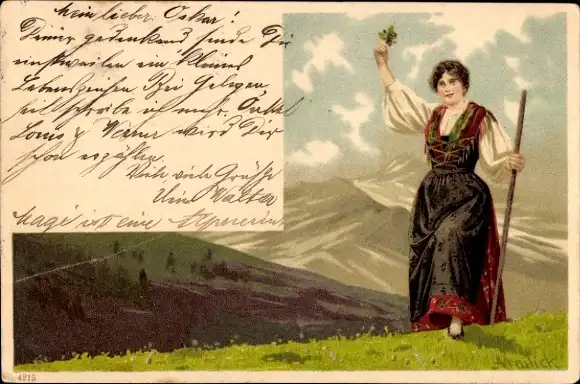 Mein lieber Oskar!
Deiner gedenkend sende Dir
einstweilen ein kleines
Lebenszeichen. Bei Gelegen-
heit schreibe ich mehr. Onkel
Louis & Werner wird Dir
schon erzählen.
Viele viele Grüße
Dein Walter
ist eine
4215